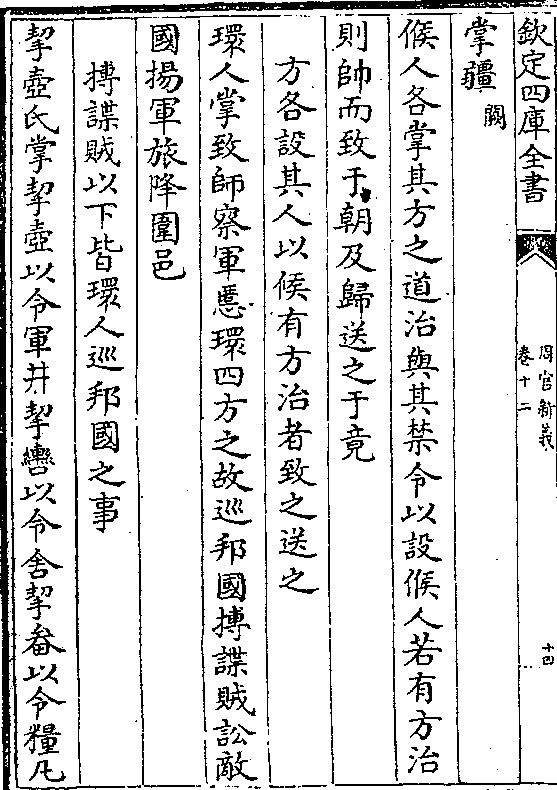 欽定四庫全書
周官新義
卷十二
十四
掌疆 闕
候人各掌其方之道治與其禁令以設候人若有方治
則帥而致于朝及歸送之于竟
方各設其人以候有方治者致之送之
環人掌致師察軍慝環四方之故巡邦國搏諜賊訟敵
國揚軍旅降圍邑
搏諜賊以下皆環人巡邦國之事
挈壺氏掌挈壺以令軍井挈轡以令舍挈畚以令糧凡